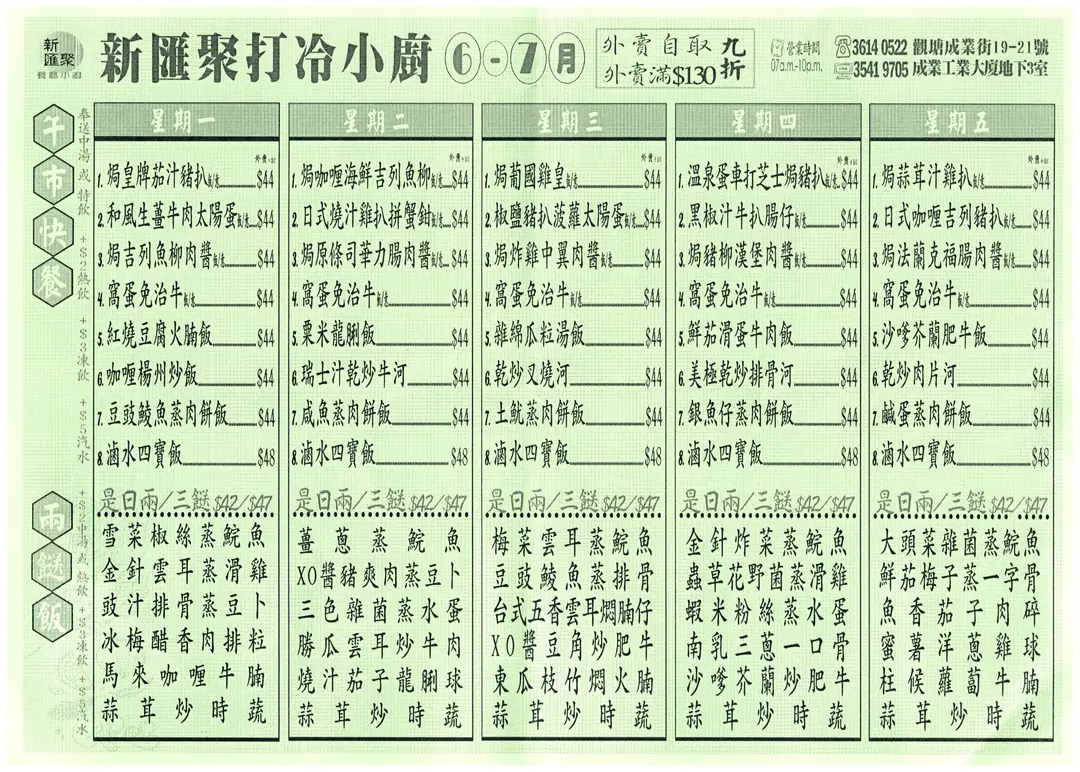 新
匯聚
餐廳小廚
新匯聚打冷小廚 6-7月
外賣自取九折
外賣滿$130
營業時間
07a.m.-10p.m.
3614 0522 觀塘成業街19-21號
3541 9705 成業工業大廈地下3室
午市快餐
奉送中湯或特飲 +$2熱飲 +$3凍飲 +$5汽水
星期一
1.焗皇牌茄汁豬扒 $44
2.和風生薑牛肉太陽蛋 $44
3.焗吉列魚柳肉醬 $44
4.窩蛋免治牛 $44
5.紅燒豆腐火腩飯 $44
6.咖喱楊州炒飯 $44
7.豆豉鯪魚蒸肉餅飯 $44
8.滷水四寶飯 $48
星期二
1.焗咖喱海鮮吉列魚柳 $44
2.日式燒汁雞扒拼蟹鉗 $44
3.焗原條司華力腸肉醬 $44
4.窩蛋免治牛 $44
5.粟米龍脷飯 $44
6.瑞士汁乾炒牛河 $44
7.咸魚蒸肉餅飯 $44
8.滷水四寶飯 $48
星期三
1.焗葡國雞皇 $44
2.椒鹽豬扒菠蘿太陽蛋 $44
3.焗炸雞中翼肉醬 $44
4.窩蛋免治牛 $44
5.雜綿瓜粒湯飯 $44
6.乾炒叉燒河 $44
7.土魷蒸肉餅飯 $44
8.滷水四寶飯 $48
星期四
1.溫泉蛋車打芝士焗豬扒 $44
2.黑椒汁牛扒腸仔 $44
3.焗豬柳漢堡肉醬 $44
4.窩蛋免治牛 $44
5.鮮茄滑蛋牛肉飯 $44
6.美極乾炒排骨河 $44
7.銀魚仔蒸肉餅飯 $44
8.滷水四寶飯 $48
星期五
1.焗蒜茸汁雞扒 $44
2.日式咖喱吉列豬扒 $44
3.焗法蘭克福腸肉醬 $44
4.窩蛋免治牛 $44
5.沙嗲芥蘭肥牛飯 $44
6.乾炒肉片河 $44
7.鹹蛋蒸肉餅飯 $44
8.滷水四寶飯 $48
兩餸飯
+$2中湯或熱飲 +$3凍飲 +$5汽水
是日兩/三餸 $42/$47
雪菜椒絲蒸鯇魚
金針雲耳蒸滑雞
豉汁排骨蒸豆卜
冰梅醋香肉排粒
馬來咖喱牛腩
蒜茸炒時蔬
是日兩/三餸 $42/$47
薑蔥蒸鯇魚
XO醬豬爽肉蒸豆卜
三色雜菌蒸水蛋
勝瓜雲耳炒牛肉
燒汁茄子龍脷球
蒜茸炒時蔬
是日兩/三餸 $42/$47
梅菜雲耳蒸鯇魚
豆豉鯪魚蒸排骨
台式五香雲耳燜腩仔
XO醬豆角炒肥牛
東瓜枝竹燜火腩
蒜茸炒時蔬
是日兩/三餸 $42/$47
金針炸菜蒸鯇魚
蟲草花野菌蒸滑雞
蝦米粉絲蒸水蛋
南乳三蔥一口骨
沙嗲芥蘭炒肥牛
蒜茸炒時蔬
是日兩/三餸 $42/$47
大頭菜雜菌蒸鯇魚
鮮茄梅子蒸一字骨
魚香茄子肉碎
蜜薯洋蔥雞球
柱候蘿蔔牛腩
蒜茸炒時蔬